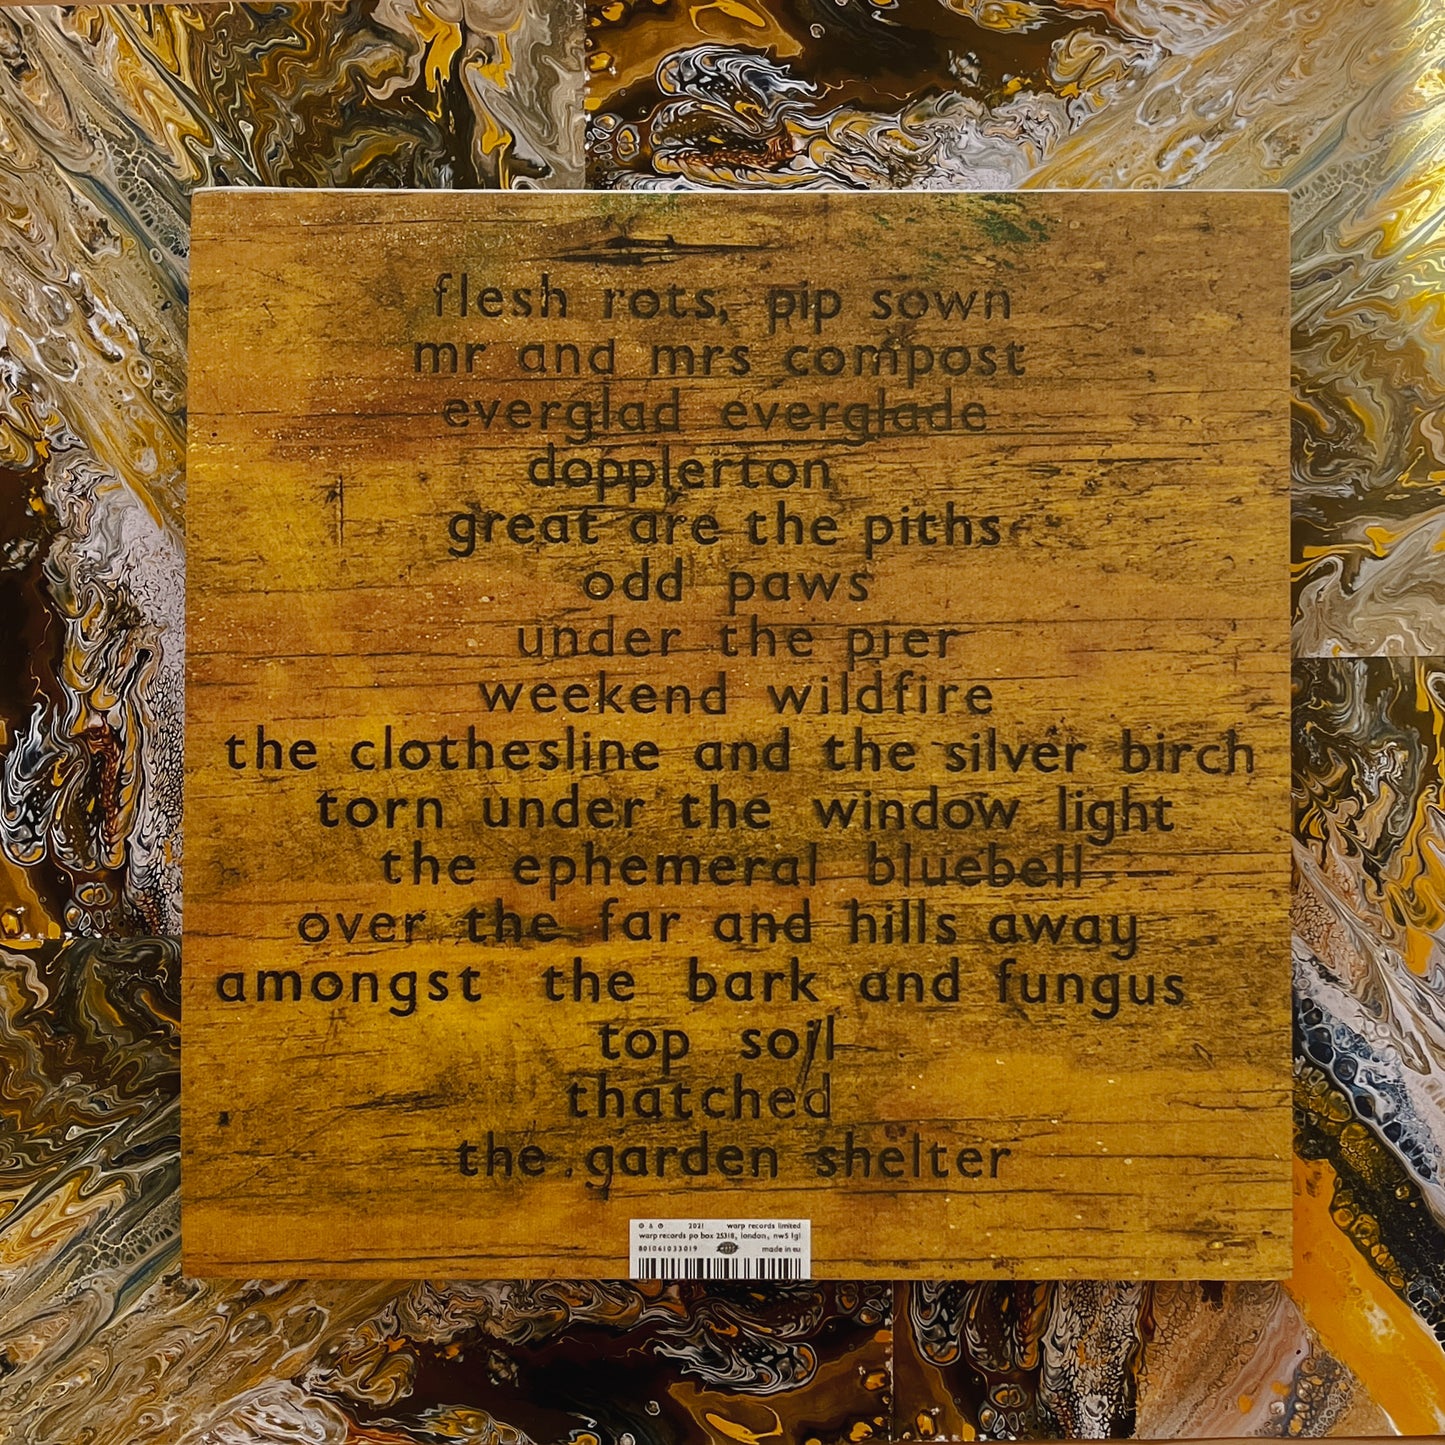 flesh rots, pip sown
mr and mrs compost
everglad everglade
dopplerton
great are the piths
odd paws
under the pier
weekend wildfire
the clothesline and the silver birch
torn under the window light
the ephemeral bluebell
over the far and hills away
amongst the bark and fungus
top soil
thatched
the garden shelter
℗ & © 2021 warp records limited
warp records po box 25318, london, nw5 1gl
801061033019 made in eu